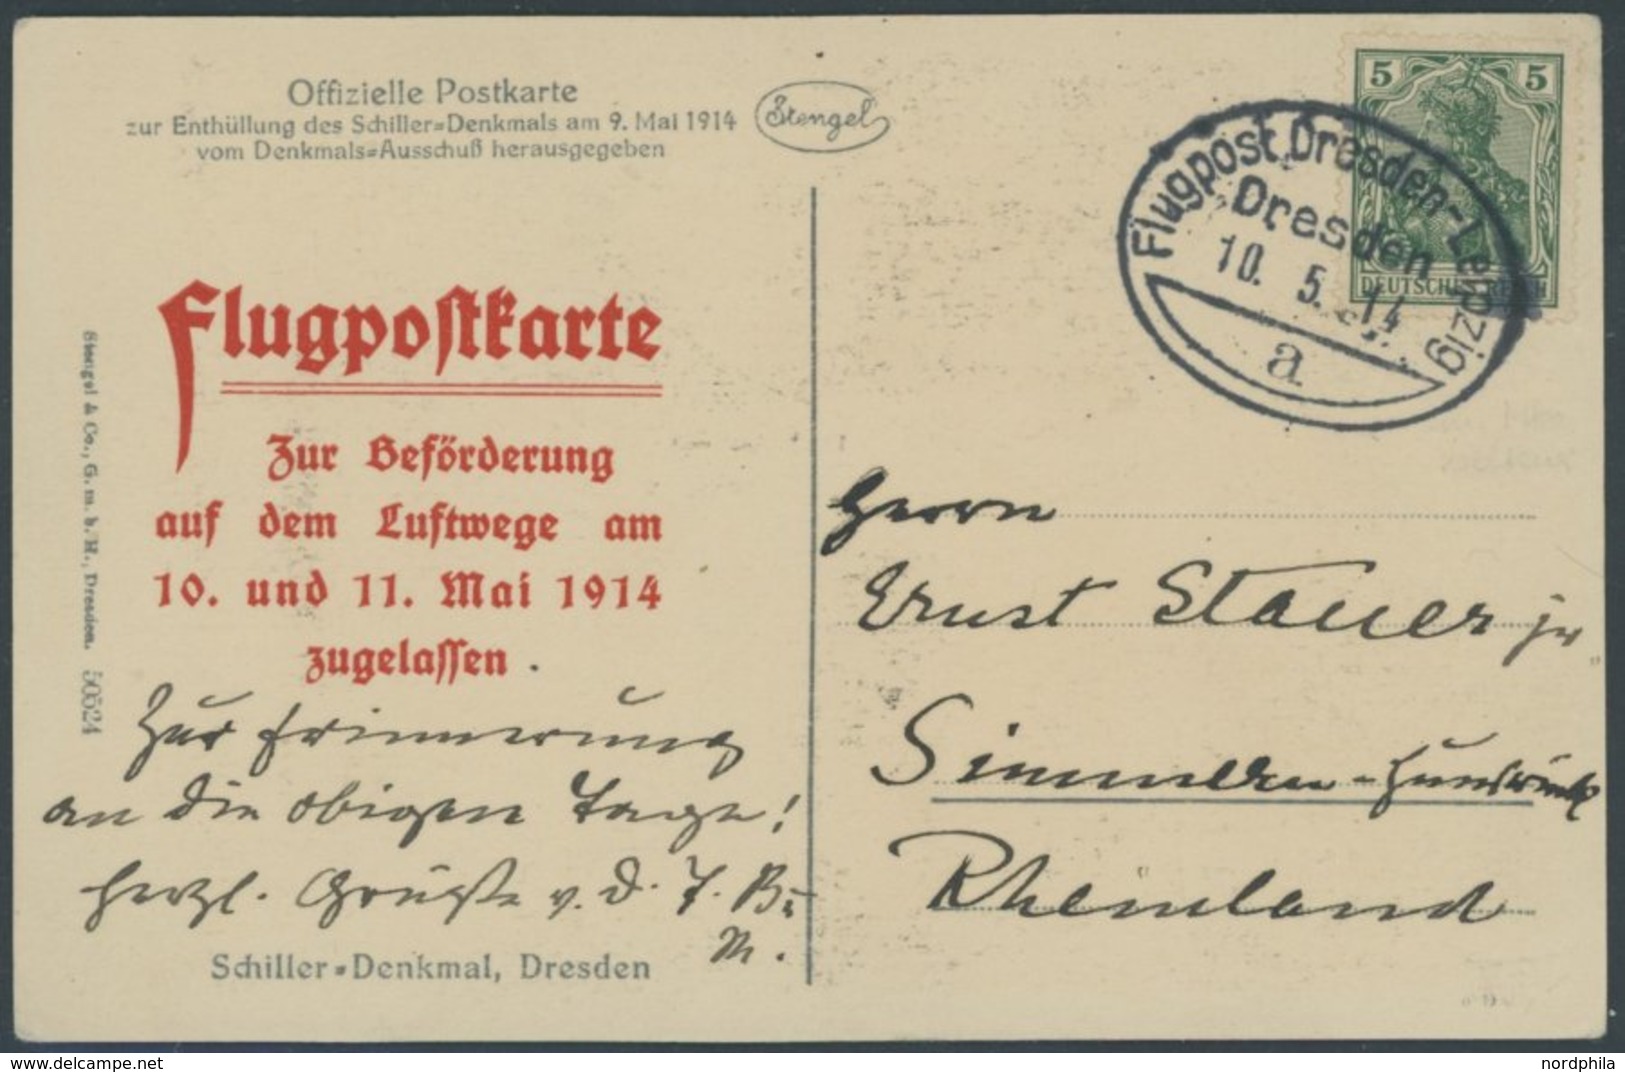 Offizielle Postkarte
zur Enthüllung des Schiller=Denkmals am 9. Mai 1914
vom Denkmals=Ausschuß herausgegeben
Stengel
5 5
DEUTSCHES REICH
Flugpost Dresden-Leipzig
Dresden
10. 5. 14
a
Flugpostkarte
Zur Beförderung
auf dem Luftwege am
10. und 11. Mai 1914
zugelassen
Stengel & Co., G. m. b. H., Dresden. 50524
Zur Erinnerung
an die obigen Tage!
Herzl. Grüße v. d. T. B.
M.
Schiller=Denkmal, Dresden
Herrn
Ernst Stauer jr.
Simmern - Hunsrück
Rheinland
(c) philasearch.com
nordphila